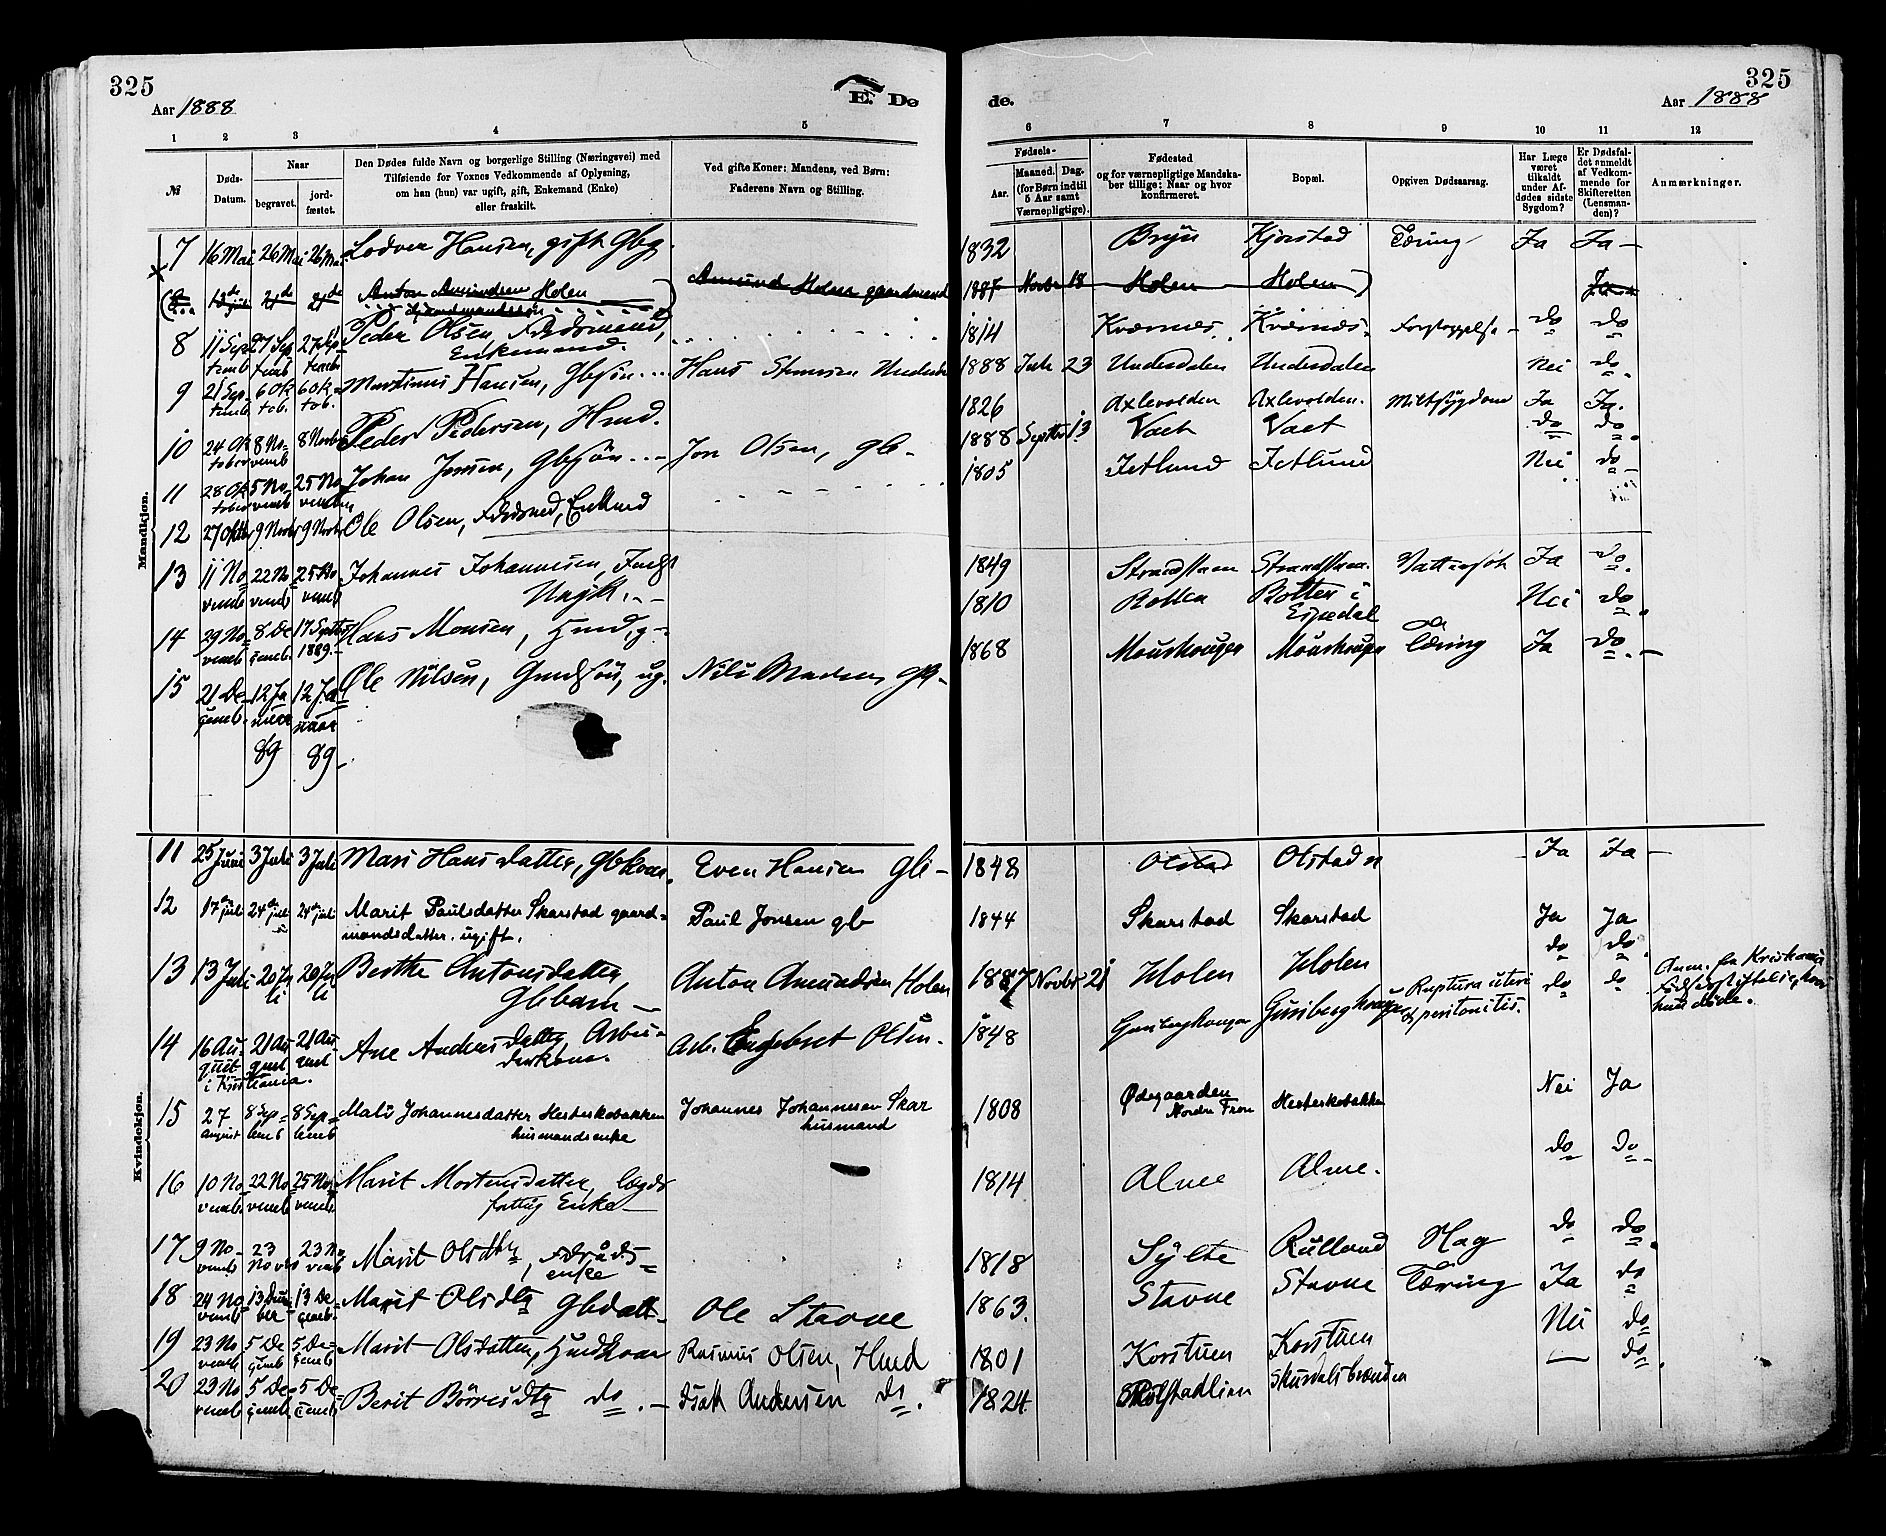 325
Aar 1888
E. Døde.
Aar 1888
325
1 2 3 4 5 6 7 8 9 10 11 12
№
Døds-Datum.
Naar
begravet.
jordfæstet.
Den Dødes fulde Navn og borgerlige Stilling (Næringsvei) med
Tilføiende for Voxnes Vedkommende af Oplysning,
om han (hun) var ugift, gift, Enkemand (Enke)
eller fraskilt.
Ved gifte Koner: Mandens, ved Børn:
Faderens Navn og Stilling.
Fødsels-
Aar.
Maaned. Dag.
(for Børn indtil
5 Aar samt
Værnepligtige).
Fødested
og for værnepligtige Mandskaber tillige: Naar og hvor
konfirmeret.
Bopæl.
Opgiven Dødsaarsag.
Har Læge været tilkaldt under Afdødes sidste Sygdom?
Er Dødsfaldet anmeldt af Vedkommende for Skifteretten (Lensmanden)?
Anmærkninger.
Mandkjøn.
7 16 Mai 26 Mai 26 Mai Lodver Hansen, gift Gbg. 1832 Bryn Kjorstad Tæring Ja Ja
Anton Amundsen Holen Amund Holen gaardmand 1887 Novbr 18 Holen Holen Ja
8 11 Septemb 27 Septemb 27 Septemb Peder Olsen, Enkemand. 1814 Kværnes Kværnes do do
9 21 Septemb. 6 Oktob. 6 Oktob. Martinus Hansen, Gbsøn Hans 1888 Juli 23 Underdalen Underdalen Nei do
10 24 Oktober 8 Novemb 8 Novbr Peder Pedersen, Hmd. 1826 Axlevolden Axlevolden. Miltsygdom Ja Ja.
11 28 Oktober 5 Novemb 25 Novemb Johan Jonsen, Gbsøn Jon Olsen, gb 1888 Septbr 13 Vaet Vaet do do
12 27 Oktbr 9 Novbr 9 Novbr Ole Olsen, Enkmd 1805 Jetlund Jetlund Nei do
13 11 Novemb 22 Novemb 25 Novemb Johannes Johannesen, 1849 Vattersot Ja do
14 29 Novemb 8 Decemb. 17 Septbr 1889. Hans Monsen, Hmd, g 1810 Botten Botten i Espedal Nei do
15 21 Decemb. 12 Januar 89 12 Januar 89 Ole Nilsen, ug. Nils Madsen 1868 Tæring Ja do
Kvindekjøn.
11 25 Juni 3 Juli 3 Juli Mari Hansdatter, gbkone. Even Hansen gb 1848 Olstad Olstad Ja Ja
12 17de juli 24de juli 24de juli Marit Paulsdatter Skarstad gaardmandsdatter. ugift. Paul Jonsen gb 1844 Skarstad Skarstad Ja Ja
13 13 Juli 20 Juli 20 Juli Berthe Antonsdatter Gbbarn Anton Amundsen Holen 1887 Novbr 21 Holen Holen do do
14 16 August i Kristiania. 21 August 21 August Ane Andersdatter, Arbeiderkone. Arb. Engebret Olsen. 1848 Ruptura uteri & peritonitis. do do Anm. fra Kristiania Fødselsstiftelse, hvor hun døde.
15 27 august 8 Septemb 8 Septemb Mali Johannesdatter Hesteskobakken husmandsenke Johannes Johannesen Skar husmand 1808 Ødegaarden Nordre Fron Hesteskobakken Nei Ja
16 10 Novemb. 22 Novemb 25 Novemb Marit Mortensdatter, lægdsfattig Enke 1814 Alme Alme. do do
17 9 Novemb 23 Novbr 23 Novemb Marit Olsdtr, enke 1818 Sylte Rulland Hag do do
18 24 Novemb 13 Decemb. Marit Olsdtr Gbdatt. Ole Stavne 1863. Stavne Stavne Tæring Ja do
19 23 Novemb 5 Decemb 5 Decemb Marit Olsdatter, Hmdkone Rasmus Olsen, Hmd 1801 Korstuen Korstuen Nei do
20 23 Novemb 5 Decemb. 5 Decemb. Berit Børresdtr do. Isak Andersen do. 1824 do.